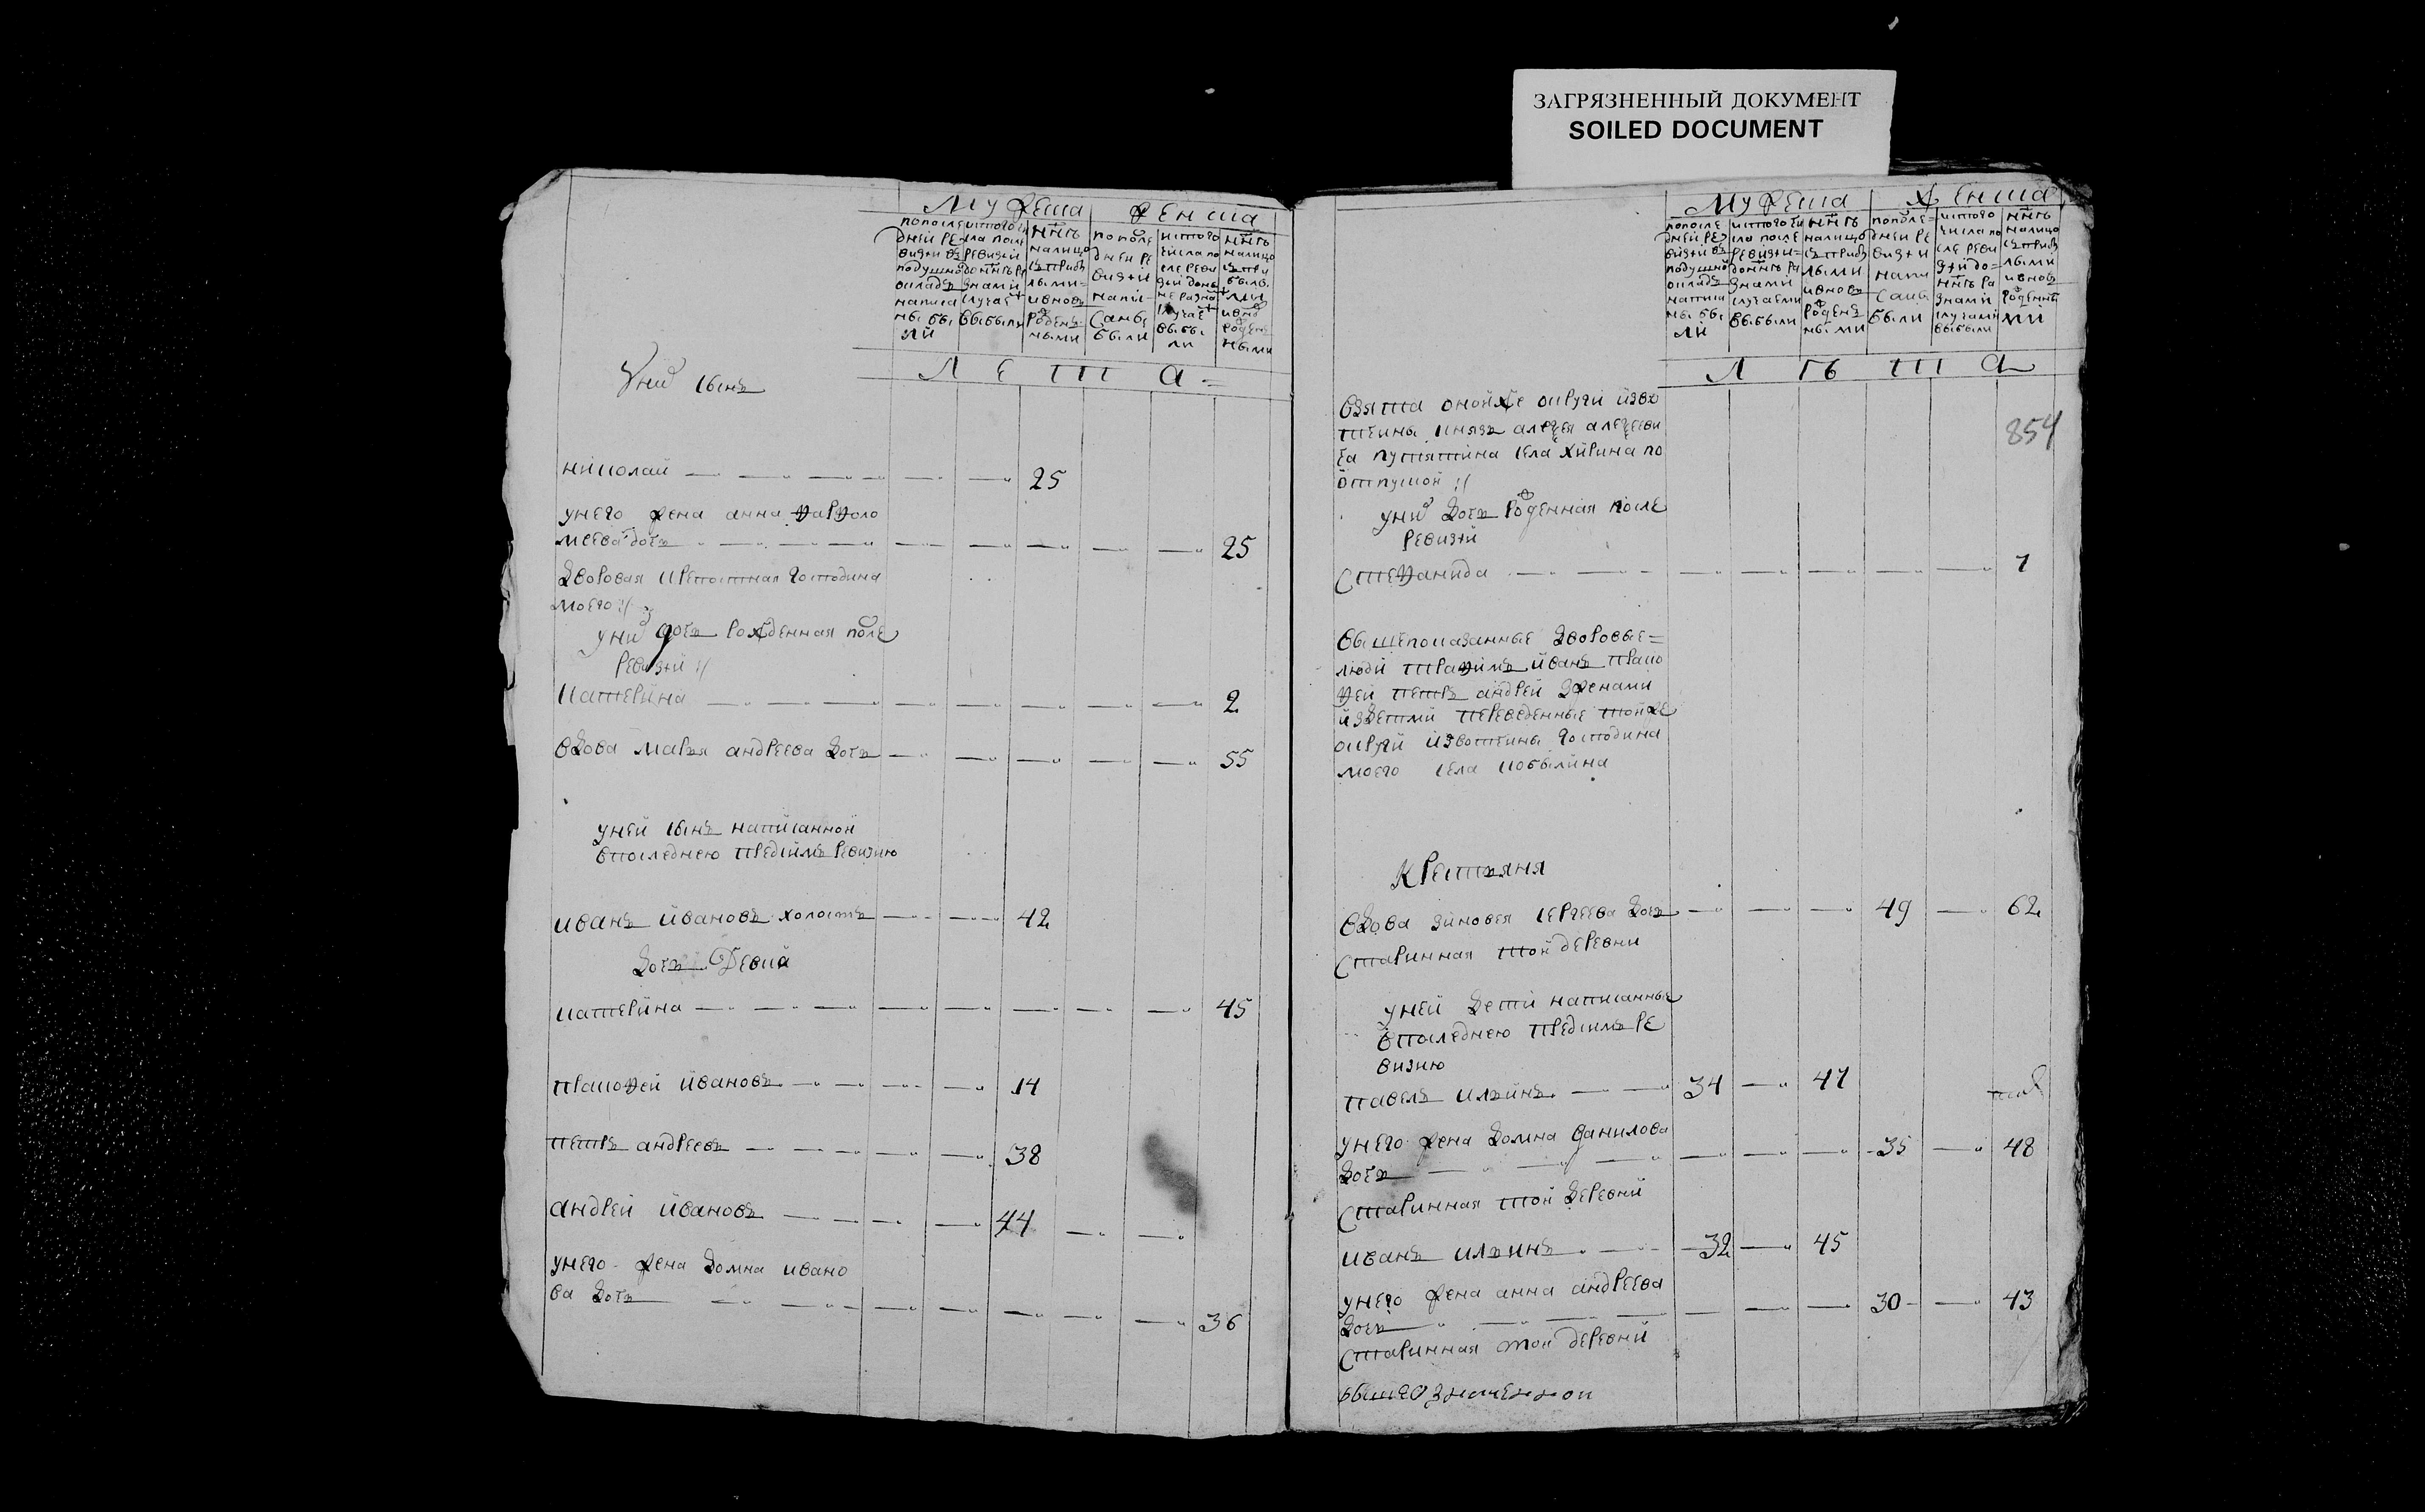 ЗАГРЯЗНЕННЫЙ ДОКУМЕНТ
SOILED DOCUMENT
Мужеска Женска
пополе
дней ре
визiи въ
подушно
окладъ
написа
ны бы
ли
истого чи
сла посл
ревизiи
донынѣ ра
знами
случае
выбыли
нынѣ
налицо
съ прибы
лыми
и вновь
рожден
ными
пополе
дней ре
визiи
напи
санъ
были
истого
числа по
сле реви
зiи доны
не разна
случае
выбы
ли
нынѣ
налицо
съ при
былы
ми
и вно
рожден
ными
Л е т а
у них сынъ
николай 25
у него жена анна варфоло
меева дочь 25
дворовая крепостная господина
моего :/
у них дочь рожденная после
ревизiи :/
катерина 2
вдова марья андреева дочь 55
у ней сынъ написанной
в последнею предсимъ ревизию
иванъ ивановъ холостъ 42
дочь девка
катерина 45
пракофей ивановъ 14
петръ андреевъ 38
андрей ивановъ 44
у него жена домна ивано
ва дочь 36
Мужеска Женска
после
дней ре
визiи въ
подушно
окладъ
написа
ны бы
ли
истого чи
сла после
ревизiи
донынѣ ра
знами
случеми
выбыли
нынѣ
налицо
съ прибы
лыми
и вновь
рожден
ными
пополе
дней ре
визiи
напи
саны
были
истого
числа по
сле реви
зiи до
нынѣ ра
знами
случами
выбыли
нынѣ
налицо
съ прибы
лыми
и вновь
рожденны
ми
Л ѣ т а
854
взята оной же округи изво
тчины князь алеѯея алеѯееви
ча путятина села хирина по
отпускной :/
у них дочь рожденная после
ревизiи
стефанида 7
вышепоказанные дворовые
люди трафимъ иванъ прако
фей петръ андрей зженами
и здетми переведенные той же
округи извотчины господина
моего села кобылина
Крестьяня
вдова зиновея сергеева дочь 49 62
старинная той деревни
у ней дети написанные
в последнею предсимъ ре
визию
павелъ ильинъ 34 47
у него жена домна данилова
дочь 35 48
старинная той деревни
иванъ ильинъ 32 45
у него жена анна андреева
дочь 30 43
старинная той деревни
вышеозначенной